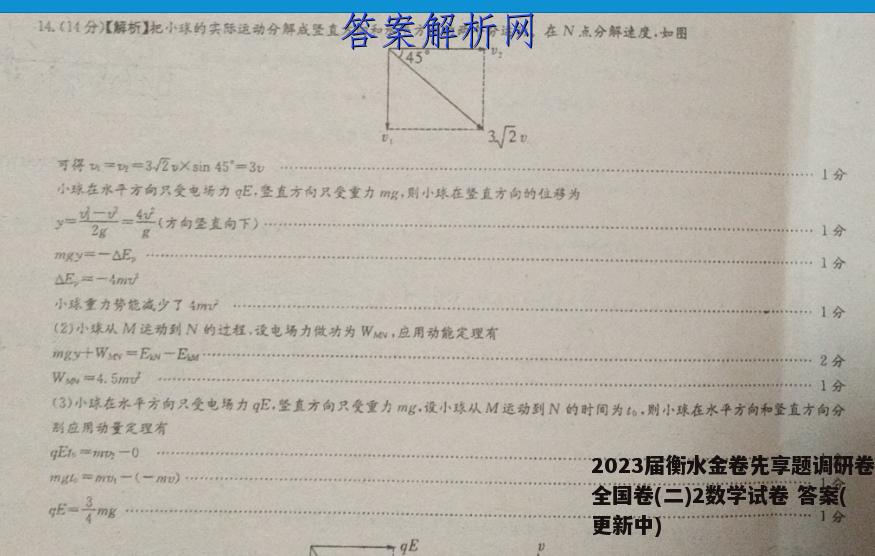 14.(14分)【解析】把小球的实际运动分解成竖直
答案解析网
在N点分解速度,如图
45°
v₂
v₁
3√2v
可得v₁=v₂=3√2v×sin 45°=3v ⋯⋯ 1分
小球在水平方向只受电场力qE,竖直方向只受重力mg,则小球在竖直方向的位移为
y=(v₁²-v²)/2g=4v²/g(方向竖直向下)⋯⋯ 1分
mgy=-ΔEₚ ⋯⋯ 1分
ΔEₚ=-4mv²
小球重力势能减少了4mv² ⋯⋯ 1分
(2)小球从M运动到N的过程,设电场力做功为W_MN,应用动能定理有
mgy+W_MN=E_kN-E_kM ⋯⋯ 2分
W_MN=4.5mv² ⋯⋯ 1分
(3)小球在水平方向只受电场力qE,竖直方向只受重力mg,设小球从M运动到N的时间为t₀,则小球在水平方向和竖直方向分
别应用动量定理有
qEt₀=mv₂-0 ⋯⋯
mgt₀=mv₁-(-mv) ⋯⋯ 1分
qE=3/4mg ⋯⋯ 1分
2023届衡水金卷先享题调研卷
全国卷(二)2数学试卷 答案(
更新中)
qE
v